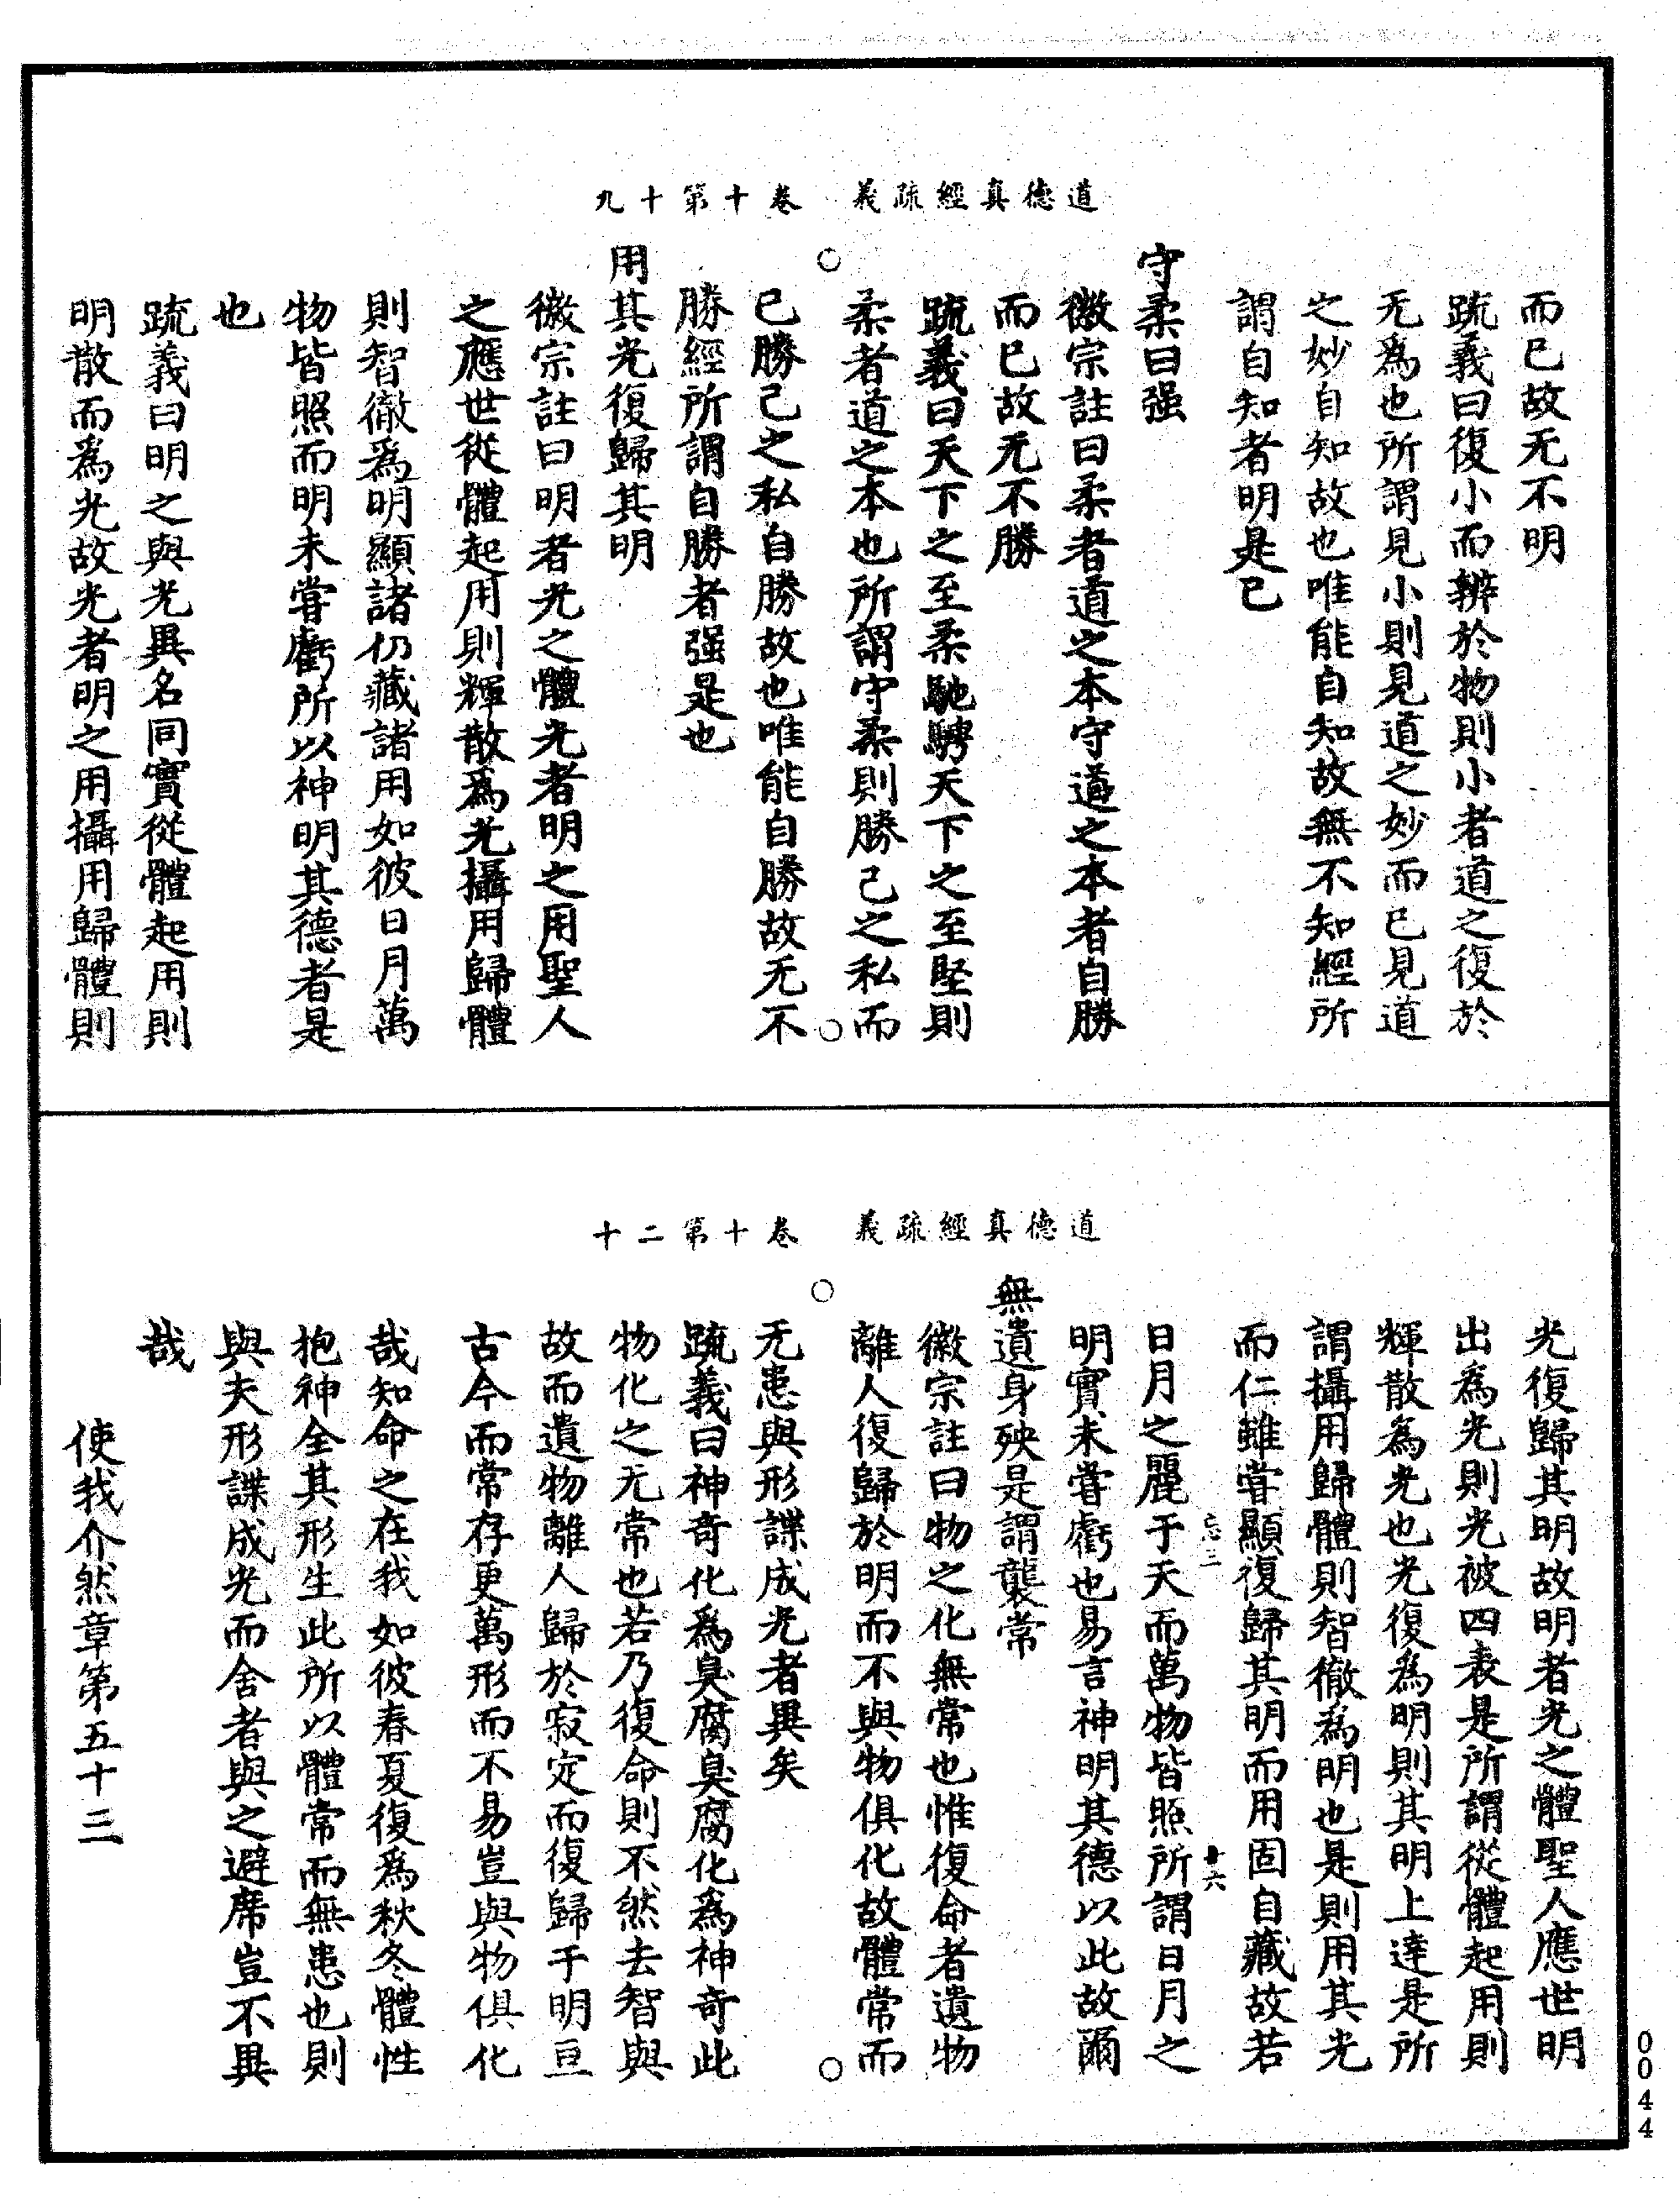 道德真經疏義　卷十第十九
而已故无不明
疏義曰復小而辨於物則小者道之復於
无為也所謂見小則見道之妙而已見道
之妙自知故也唯能自知故無不知經所
謂自知者明是已
守柔曰强
徽宗註曰柔者道之本守道之本者自勝
而已故无不勝
疏義曰天下之至柔馳騁天下之至堅則
柔者道之本也所謂守柔則勝己之私而
已勝己之私自勝故也唯能自勝故无不
勝經所謂自勝者强是也
用其光復歸其明
徽宗註曰明者光之體光者明之用聖人
之應世從體起用則輝散爲光攝用歸體
則智徹爲明顯諸仍藏諸用如彼日月萬
物皆照而明未嘗虧所以神明其德者是
也
疏義曰明之與光異名同實從體起用則
明散而爲光故光者明之用攝用歸體則
道德真經疏義　卷十第二十
光復歸其明故明者光之體聖人應世明
出為光則光被四表是所謂從體起用則
輝散為光也光復為明則其明上達是所
謂攝用歸體則智徹為明也是則用其光
而仁雖嘗顯復歸其明而用固自藏故若
忘二　十六
日月之麗于天而萬物皆照所謂日月之
明實未嘗虧也易言神明其德以此故爾
無遺身殃是謂襲常
徽宗註曰物之化無常也惟復命者遺物
離人復歸於明而不與物俱化故體常而
无患與形諜成光者異矣
疏義曰神奇化爲臭腐臭腐化爲神奇此
物化之无常也若乃復命則不然去智與
故而遺物離人歸於寂定而復歸于明亘
古今而常存更萬形而不易豈與物俱化
哉知命之在我如彼春夏復爲秋冬體性
抱神全其形生此所以體常而無患也則
與夫形諜成光而舍者與之避席豈不異
哉
使我介然章第五十三
0044